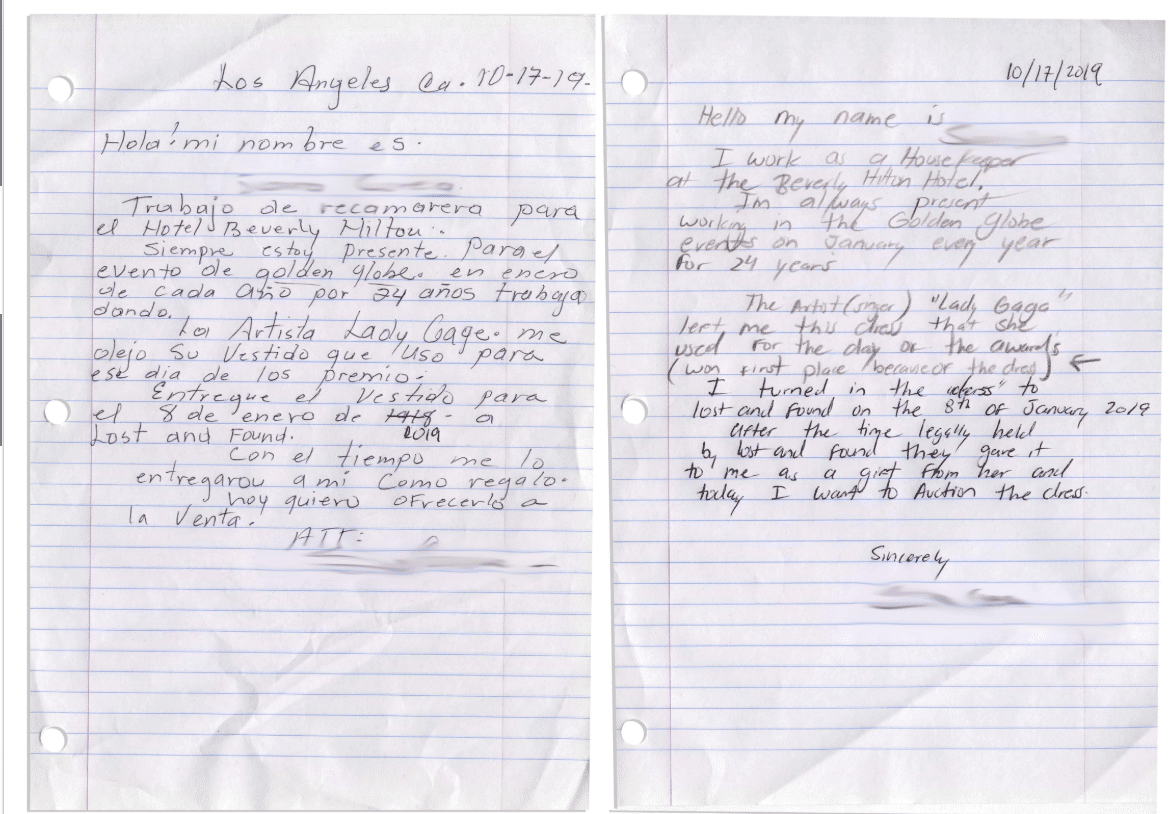 Los Angeles Ca. 10-17-19.
Hola! mi nombre es.
Trabajo de recamarera para
el Hotel Beverly Hilton..
Siempre estoy presente para el
evento de golden globe. en enero
de cada año por 24 años trabaja
dando.
La Artista Lady Gage. me
dejo su Vestido que uso para
ese dia de los premio.
Entregue el vestido para
el 8 de enero de 1918 - a
2019
Lost and Found.
Con el tiempo me lo
entregarou a mi Como regalo.
hoy quiero ofrecerlo a
la Venta.
ATT:
10/17/2019
Hello my name is
I work as a Housekeeper
at the Beverly Hilton Hotel.
Im allways present
working in the Golden globe
events on January every year
for 24 years
The Artist (singer) "Lady Gaga"
left me this dress that she
used for the day of the awards
(won first place / because of the dress) ←
I turned in the "dress" to
lost and found on the 8th of January 2019
after the time legally held
by lost and found they gave it
to me as a gift from her and
today I want to Auction the dress.
Sincerely